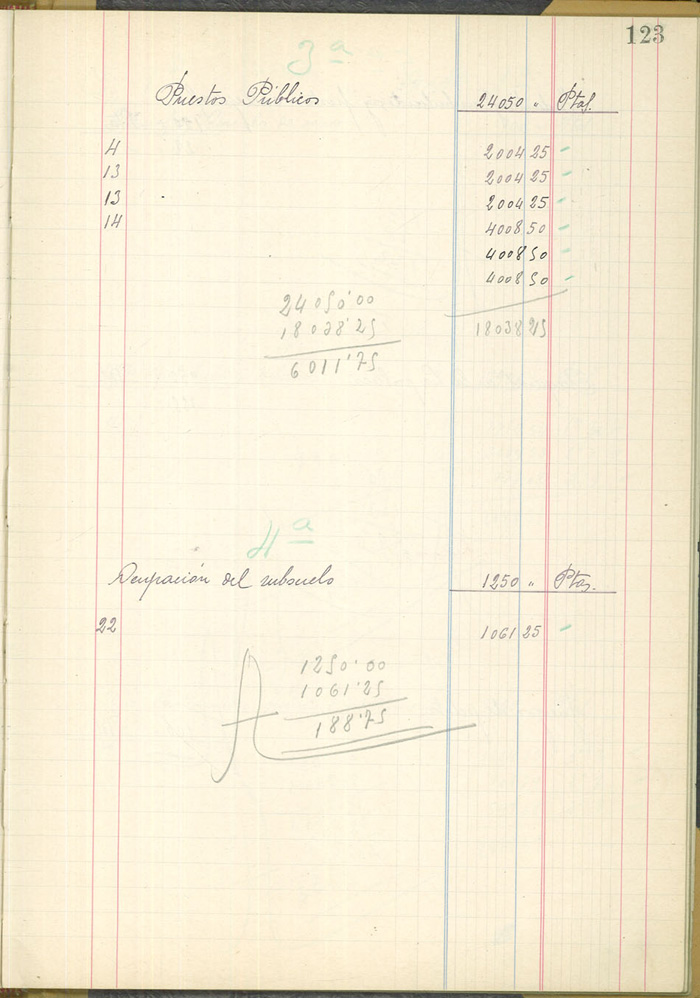 123
3ª
Puestos Públicos 24050 " Ptas.
4 2004 25
13 2004 25
13 2004 25
14 4008 50
4008 50
4008 50
24050'00
18038'25 18038 25
6011'75
4ª
Ocupación del subsuelo 1250 " Ptas.
22 1061 25
1250'00
1061'25
188'75